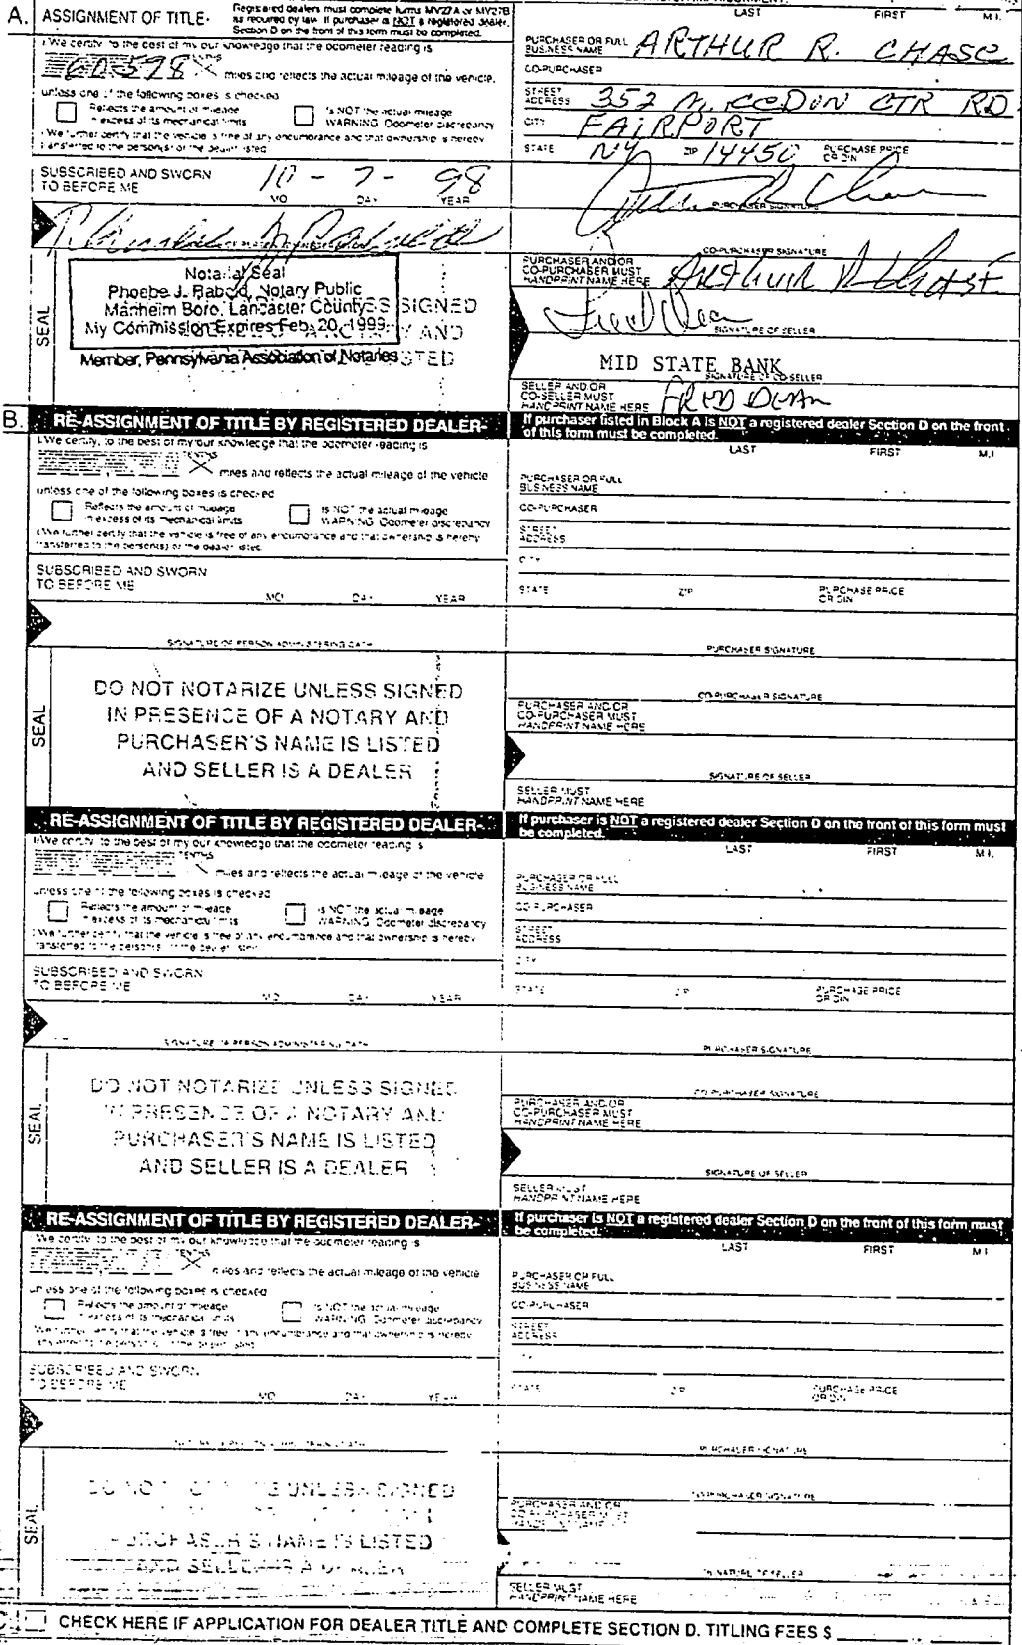 A. ASSIGNMENT OF TITLE- Registered dealers must complete forms MV27A or MV27B as required by law. If purchaser is NOT a registered dealer, Section D on the front of this form must be completed.
I/We certify, to the best of my/our knowledge that the odometer reading is
60,598 X miles and reflects the actual mileage of the vehicle,
unless one of the following boxes is checked
Reflects the amount of mileage in excess of its mechanical limits
Is NOT the actual mileage WARNING: Odometer discrepancy
I/We further certify that the vehicle is free of any encumbrance and that ownership is hereby
transferred to the person(s) or the dealer listed
SUBSCRIBED AND SWORN TO BEFORE ME 10 - 7 - 98
MO. DAY YEAR
SEAL
Notarial Seal
Phoebe J. Rabold, Notary Public
Manheim Boro, Lancaster County
My Commission Expires Feb. 20, 1999
Member, Pennsylvania Association of Notaries
LAST FIRST M.I.
PURCHASER OR FULL BUSINESS NAME ARTHUR R. CHASE
CO-PURCHASER
STREET ADDRESS 352 CTR RD
CITY FAIRPORT
STATE NY ZIP 14450 PURCHASE PRICE OR DIN
PURCHASER SIGNATURE
CO-PURCHASER SIGNATURE
PURCHASER AND/OR CO-PURCHASER MUST HANDPRINT NAME HERE ARTHUR R CHASE
SIGNATURE OF SELLER
MID STATE BANK
SIGNATURE OF CO-SELLER
SELLER AND/OR CO-SELLER MUST HANDPRINT NAME HERE FRED DEAN
B. RE-ASSIGNMENT OF TITLE BY REGISTERED DEALER-
If purchaser listed in Block A is NOT a registered dealer Section D on the front of this form must be completed.
I/We certify, to the best of my/our knowledge that the odometer reading is
TENTHS X miles and reflects the actual mileage of the vehicle
unless one of the following boxes is checked
Reflects the amount of mileage in excess of its mechanical limits
Is NOT the actual mileage WARNING: Odometer discrepancy
I/We further certify that the vehicle is free of any encumbrance and that ownership is hereby
transferred to the person(s) or the dealer listed.
SUBSCRIBED AND SWORN TO BEFORE ME
MO. DAY YEAR
SIGNATURE OF PERSON ADMINISTERING OATH
SEAL
DO NOT NOTARIZE UNLESS SIGNED
IN PRESENCE OF A NOTARY AND
PURCHASER'S NAME IS LISTED
AND SELLER IS A DEALER
LAST FIRST M.I.
PURCHASER OR FULL BUSINESS NAME
CO-PURCHASER
STREET ADDRESS
CITY
STATE ZIP PURCHASE PRICE OR DIN
PURCHASER SIGNATURE
CO-PURCHASER SIGNATURE
PURCHASER AND/OR CO-PURCHASER MUST HANDPRINT NAME HERE
SIGNATURE OF SELLER
SELLER MUST HANDPRINT NAME HERE
RE-ASSIGNMENT OF TITLE BY REGISTERED DEALER-
If purchaser is NOT a registered dealer Section D on the front of this form must be completed.
I/We certify, to the best of my/our knowledge that the odometer reading is
TENTHS miles and reflects the actual mileage of the vehicle
unless one of the following boxes is checked
Reflects the amount of mileage in excess of its mechanical limits
Is NOT the actual mileage WARNING: Odometer discrepancy
I/We further certify that the vehicle is free of any encumbrance and that ownership is hereby
transferred to the person(s) or the dealer listed
SUBSCRIBED AND SWORN TO BEFORE ME
MO. DAY YEAR
SIGNATURE OF PERSON ADMINISTERING OATH
SEAL
DO NOT NOTARIZE UNLESS SIGNED
IN PRESENCE OF A NOTARY AND
PURCHASER'S NAME IS LISTED
AND SELLER IS A DEALER
LAST FIRST M.I.
PURCHASER OR FULL BUSINESS NAME
CO-PURCHASER
STREET ADDRESS
CITY
STATE ZIP PURCHASE PRICE OR DIN
PURCHASER SIGNATURE
CO-PURCHASER SIGNATURE
PURCHASER AND/OR CO-PURCHASER MUST HANDPRINT NAME HERE
SIGNATURE OF SELLER
SELLER MUST HANDPRINT NAME HERE
RE-ASSIGNMENT OF TITLE BY REGISTERED DEALER-
If purchaser is NOT a registered dealer Section D on the front of this form must be completed.
I/We certify, to the best of my/our knowledge that the odometer reading is
TENTHS X miles and reflects the actual mileage of the vehicle
unless one of the following boxes is checked
Reflects the amount of mileage in excess of its mechanical limits
Is NOT the actual mileage WARNING: Odometer discrepancy
SUBSCRIBED AND SWORN TO BEFORE ME
MO. DAY YEAR
SEAL
DO NOT UNLESS SIGNED
PURCHASER'S NAME IS LISTED
AND SELLER IS A DEALER
LAST FIRST M.I.
PURCHASER OR FULL BUSINESS NAME
CO-PURCHASER
STREET ADDRESS
STATE ZIP PURCHASE PRICE OR DIN
PURCHASER SIGNATURE
CO-PURCHASER SIGNATURE
PURCHASER AND/OR CO-PURCHASER MUST HANDPRINT NAME
SIGNATURE OF SELLER
SELLER MUST HANDPRINT NAME HERE
C. CHECK HERE IF APPLICATION FOR DEALER TITLE AND COMPLETE SECTION D. TITLING FEES $